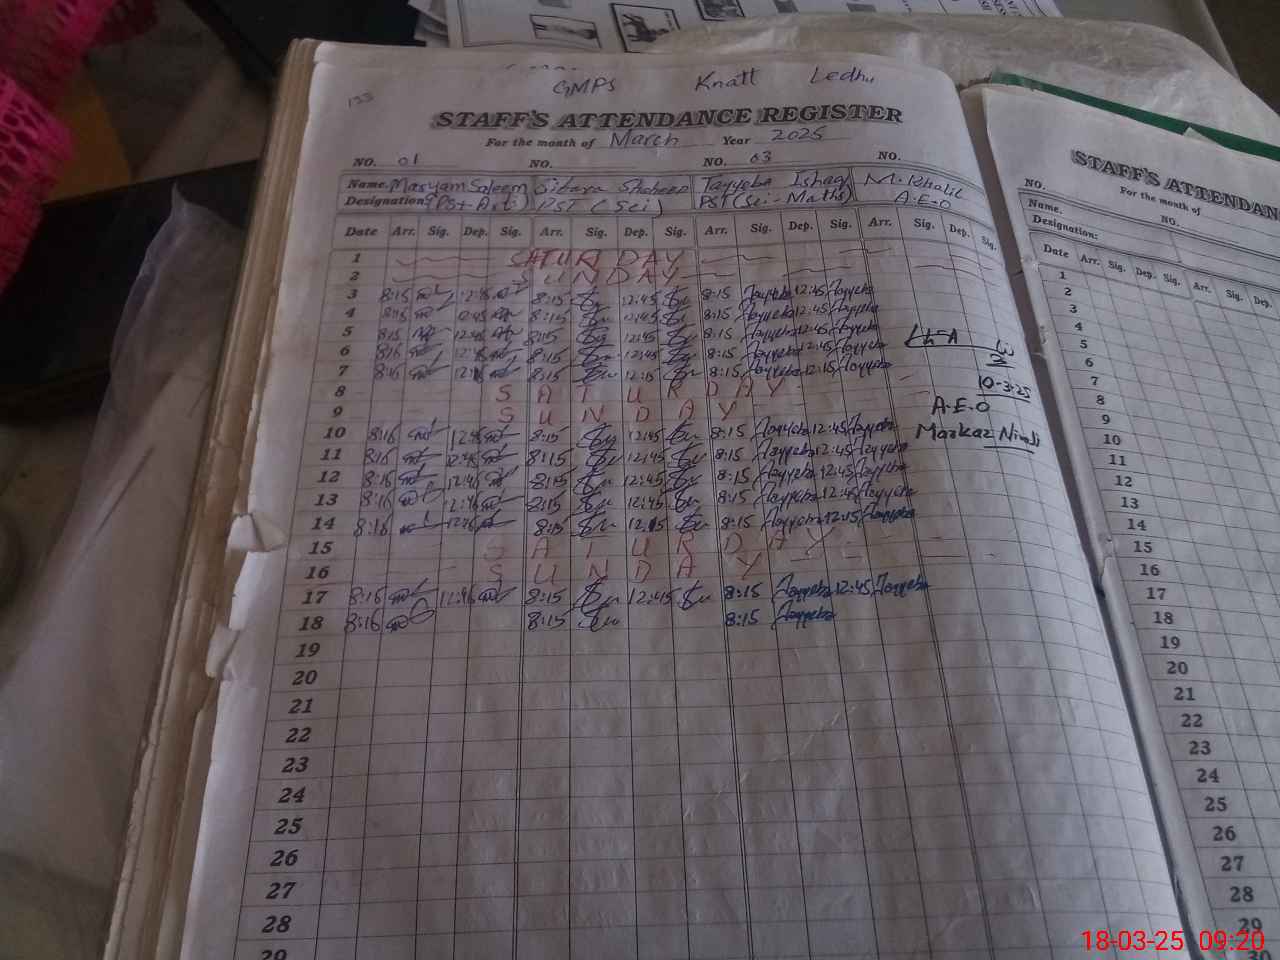 GMPS Knatt Ledhu
133
STAFF'S ATTENDANCE REGISTER
For the month of March Year 2025
NO. 01 NO. NO. 03 NO.
Name. Maryam Saleem Sitara Shaheen Tayyeba Ishaq M. Khalil
Designation: (Pst-Art) PST (Sci) PST (Sci-Maths) A.E.O
Date Arr. Sig. Dep. Sig. Arr. Sig. Dep. Sig. Arr. Sig. Dep. Sig. Arr. Sig. Dep. Sig.
1 SATURDAY
2 SUNDAY
3 8:15 12:45 8:15 12:45 8:15 Tayyeba 12:45 Tayyeba
4 8:15 12:45 8:15 12:45 8:15 Tayyeba 12:45 Tayyeba
5 8:15 12:45 8:15 12:45 8:15 Tayyeba 12:45 Tayyeba
6 8:16 8:15 12:45 8:15 Tayyeba 12:45 Tayyeba
7 8:16 12:15 8:15 12:15 8:15 Tayyeba 12:15 Tayyeba
8 SATURDAY
9 SUNDAY
10 8:16 12:45 8:15 12:45 8:15 Tayyeba 12:45 Tayyeba
11 8:16 12:45 8:15 12:45 8:15 Tayyeba 12:45 Tayyeba
12 8:16 12:46 8:15 12:45 8:15 Tayyeba 12:45 Tayyeba
13 8:16 12:46 8:15 12:45 8:15 Tayyeba 12:45 Tayyeba
14 8:16 8:15 12:15 8:15 Tayyeba 12:15 Tayyeba
15 SATURDAY
16 SUNDAY
17 8:16 12:46 8:15 12:45 8:15 Tayyeba 12:45 Tayyeba
18 8:16 8:15 8:15 Tayyeba
19
20
21
22
23
24
25
26
27
28
29
10-3-25
A.E.O
Markaz Niwali
STAFF'S ATTENDAN
For the month of
NO. NO.
Name.
Designation:
Date Arr. Sig. Dep. Sig. Arr. Sig. Dep.
1
2
3
4
5
6
7
8
9
10
11
12
13
14
15
16
17
18
19
20
21
22
23
24
25
26
27
28
29
30
18-03-25 09:20